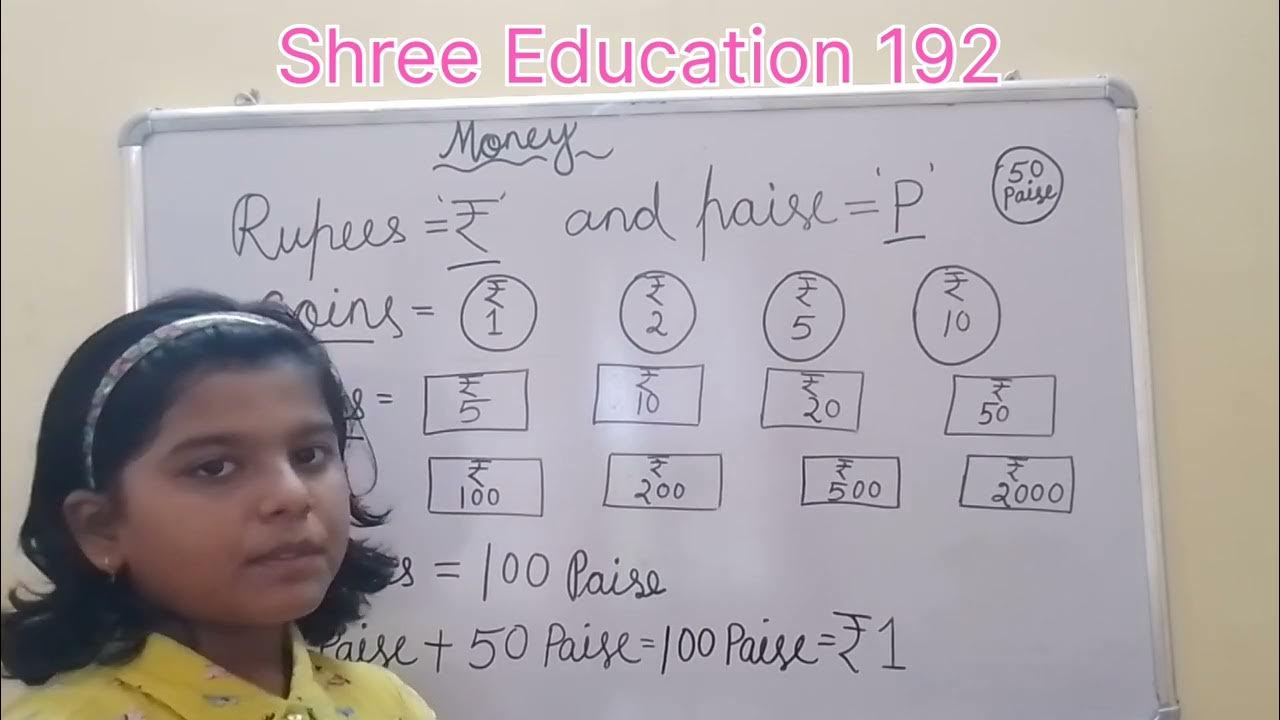 Shree Education 192
Money
50
Paise
Rupees = '₹' and paise = 'P'
Coins = ₹ 1 ₹ 2 ₹ 5 ₹ 10
= ₹ 5 ₹ 10 ₹ 20 ₹ 50
₹ 100 ₹ 200 ₹ 500 ₹ 2000
= 100 Paise
Paise + 50 Paise = 100 Paise = ₹1